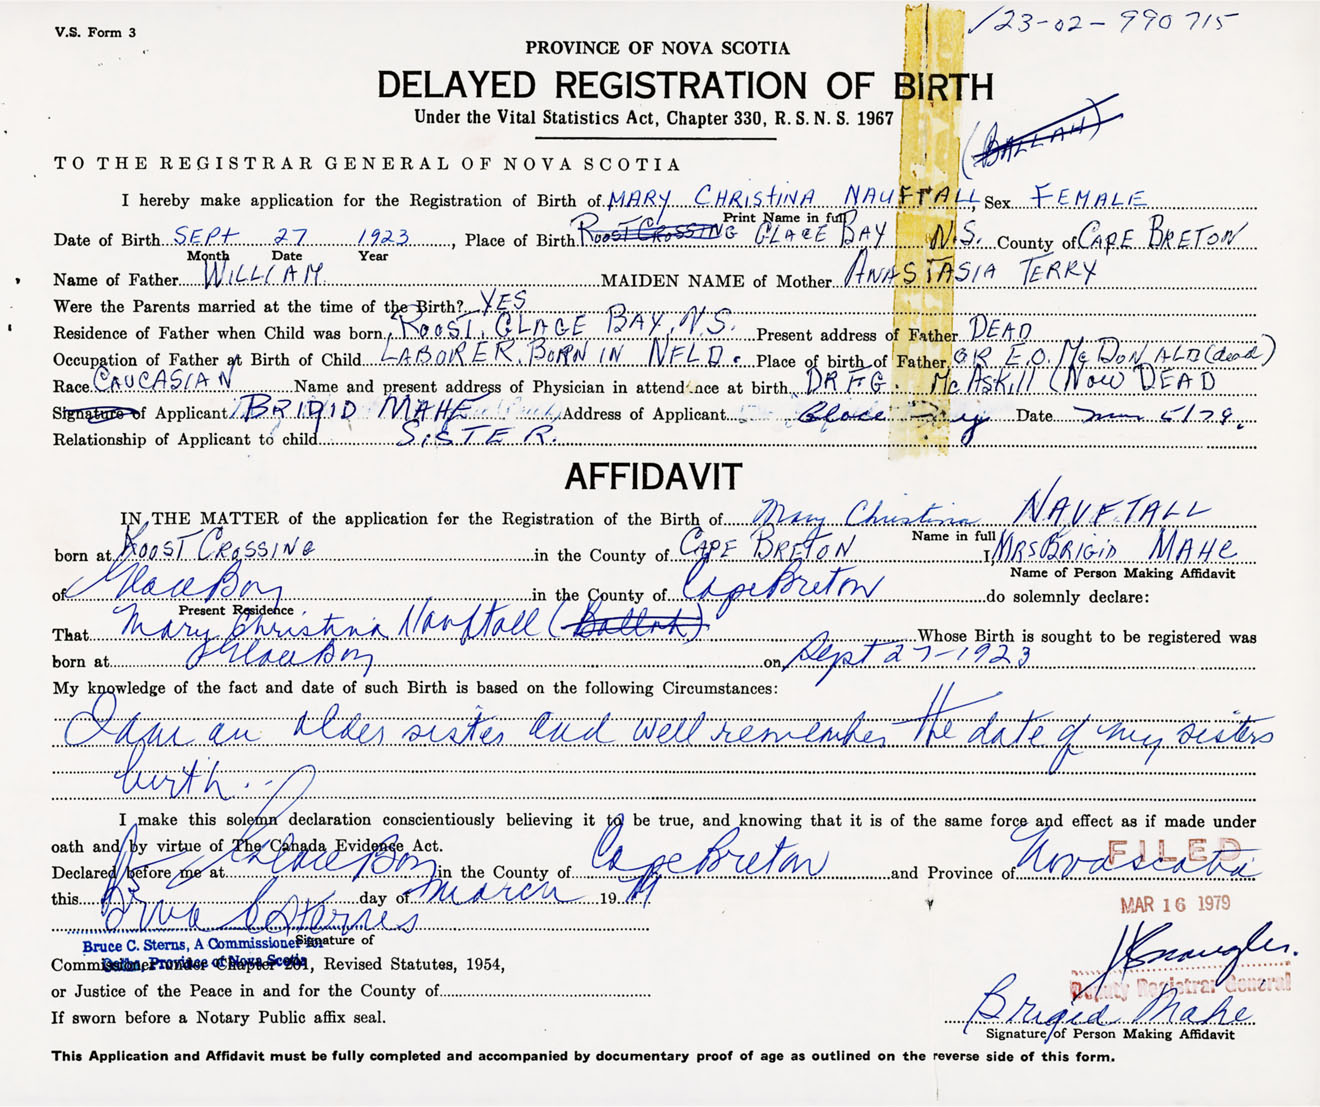 V.S. Form 3
123-02-990715
PROVINCE OF NOVA SCOTIA
DELAYED REGISTRATION OF BIRTH
Under the Vital Statistics Act, Chapter 330, R. S. N. S. 1967
(BALLAH)
TO THE REGISTRAR GENERAL OF NOVA SCOTIA
I hereby make application for the Registration of Birth of MARY CHRISTINA NAUFTALL, Sex FEMALE
Print Name in full
Date of Birth SEPT 27 1923, Place of Birth ROOST CROSSING GLACE BAY N.S. County of CAPE BRETON
Month Date Year
Name of Father WILLIAM MAIDEN NAME of Mother ANASTASIA TERRY
Were the Parents married at the time of the Birth? YES
Residence of Father when Child was born ROOST, GLACE BAY, N.S. Present address of Father DEAD
Occupation of Father at Birth of Child LABORER. BORN IN NFLD. Place of birth of Father OR E.O. McDONALD (dead)
Race CAUCASIAN Name and present address of Physician in attendance at birth DR F.G. McASKILL (NOW DEAD
Signature of Applicant BRIGID MAHE Address of Applicant Glace Bay Date Mar 5/79.
Relationship of Applicant to child SISTER.
AFFIDAVIT
IN THE MATTER of the application for the Registration of the Birth of Mary Christina NAUFTALL
Name in full
born at ROOST CROSSING in the County of CAPE BRETON I, MRS BRIGID MAHE
Name of Person Making Affidavit
of Glace Bay in the County of Cape Breton do solemnly declare:
Present Residence
That Mary Christina Nauftall (Ballah) Whose Birth is sought to be registered was
born at Glace Bay on Sept 27-1923
My knowledge of the fact and date of such Birth is based on the following Circumstances:
I am an older sister and well remember the date of my sisters
birth.
I make this solemn declaration conscientiously believing it to be true, and knowing that it is of the same force and effect as if made under
oath and by virtue of The Canada Evidence Act.
FILED
Declared before me at Glace Bay in the County of Cape Breton and Province of Nova Scotia
this day of March 19 79
MAR 16 1979
Bruce C Sternes
Bruce C. Sterns, A Commissioner for
Signature of
Oaths, Province of Nova Scotia
Commissioner under Chapter 201, Revised Statutes, 1954,
Deputy Registrar General
or Justice of the Peace in and for the County of
Brigid Mahe
If sworn before a Notary Public affix seal.
Signature of Person Making Affidavit
This Application and Affidavit must be fully completed and accompanied by documentary proof of age as outlined on the reverse side of this form.